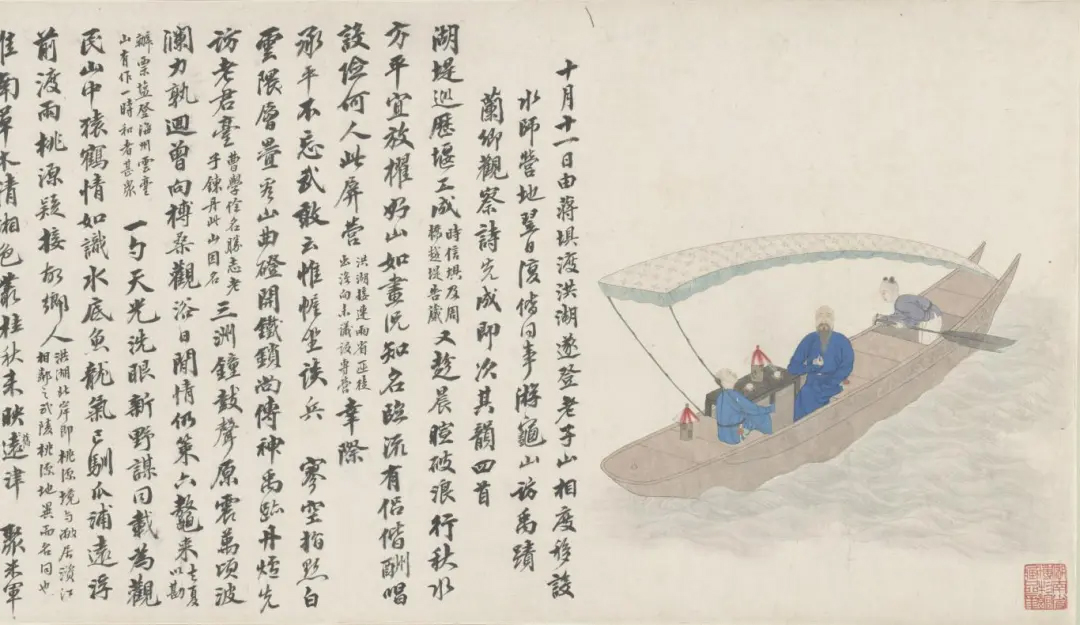 十月十一日由蔣壩渡洪湖遂登老子山相度移設
水師營地翌日復偕同事游龜山訪禹蹟
蘭卿觀察詩先成即次其韻四首
湖堤巡歷堰工成
時信壩及周
橋越堤告蕆
又趁晨暄破浪行秋水
方平宜放櫂好山如畫況知名臨流有侶偕酬唱
設險何人此屏營
洪湖接連兩省匪徒
出沒向未議設專營
幸際
承平不忘武敢云惟幄坐談兵 寥空指點白
雲隈層疊秀山曲磴開鐵鎖尚傳神禹跡丹爐先
訪老君臺
曹學佺名勝志老
子鍊丹此山因名
三洲鐘鼓聲原震萬頃波
瀾力孰迴曾向榑桑觀浴日閒情仍策六鼇來
去夏
以勘
辦票鹽登海州雲臺
山有作一時和者甚眾
一勺天光洗眼新野謀同載為觀
民山中猿鶴情如識水底魚龍氣已馴瓜浦遠浮
前渡雨桃源疑接故鄉人
洪湖北岸即桃源境與敝居濱江
相鄰之武陵桃源地異而名同也
南草木清湘色叢桂秋來映遠津 聚米軍